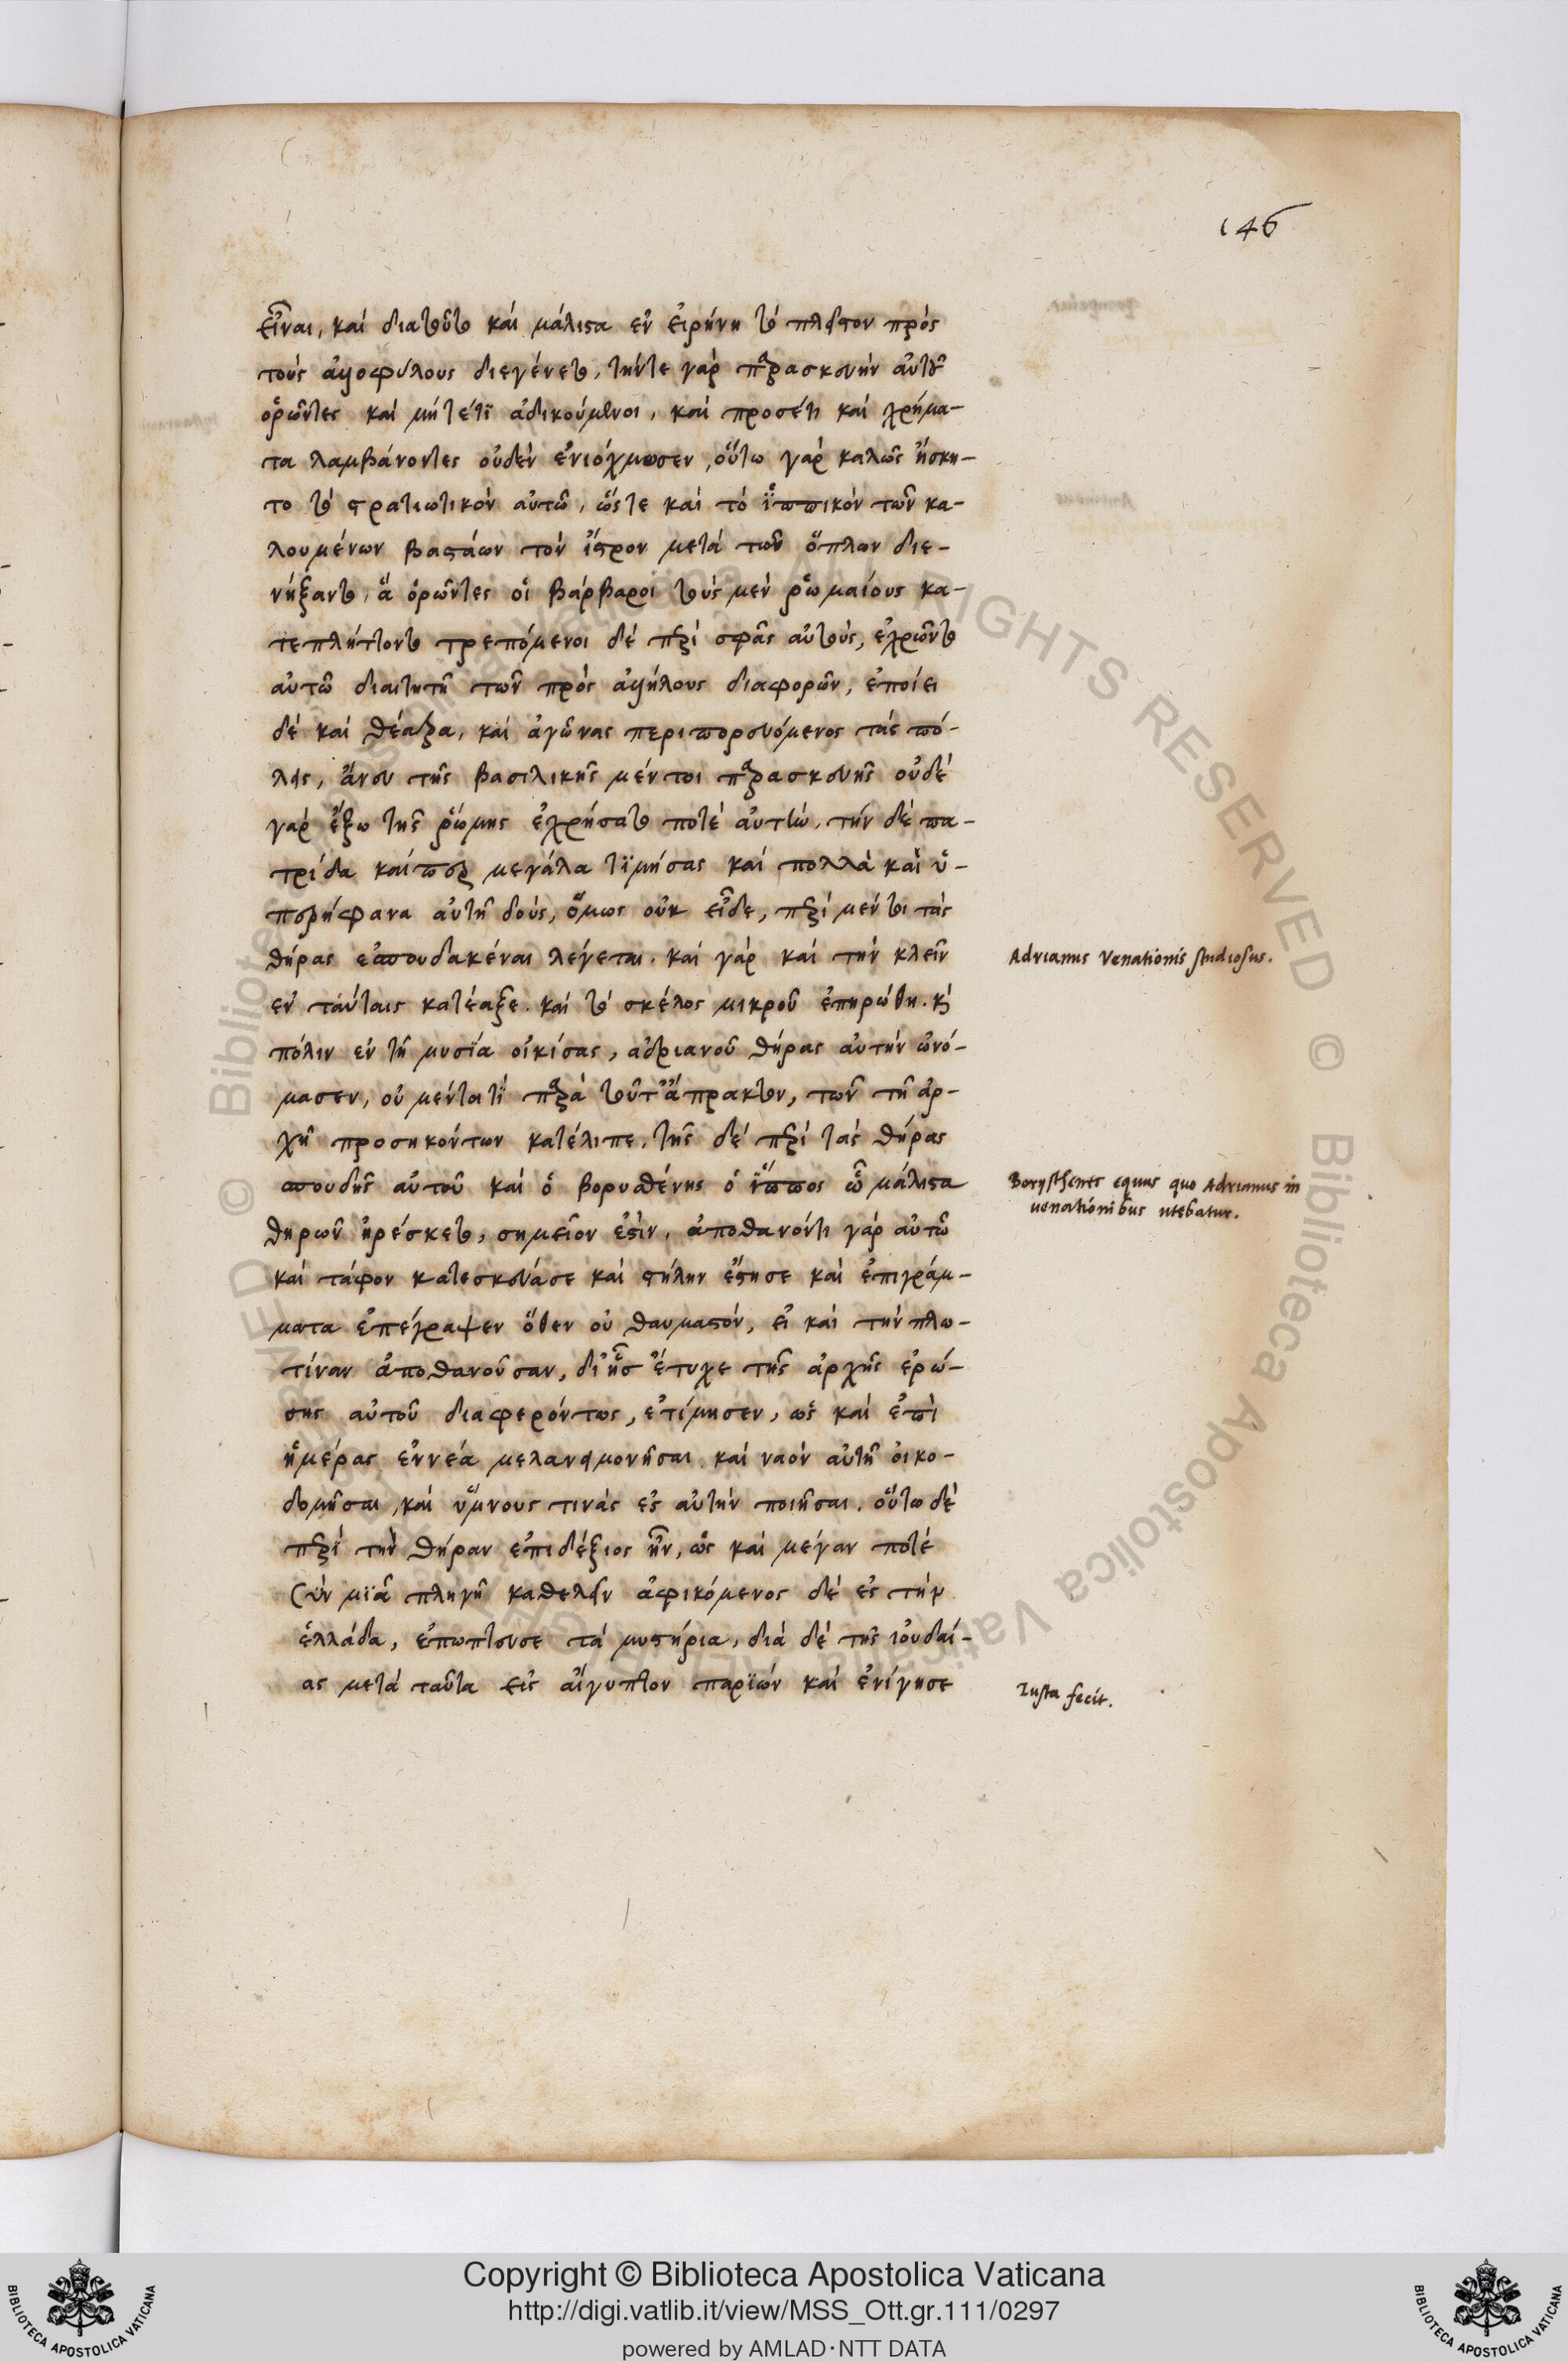 146
εἶναι, καὶ διατοῦτο καὶ μάλιστα ἐν εἰρήνη τὸ πλεῖστον πρὸς
τοὺς ἀλλοφύλους διεγένετο, τήντε γὰρ παρασκευὴν αὐτοῦ
ὁρῶντες καὶ μήτέτϊ ἀδικούμενοι, καὶ προσέτι καὶ χρήμα-
τα λαμβάνοντες οὐδὲν ἐνιόχμωσεν, οὕτω γὰρ καλῶς ἤσκη-
το τὸ στρατιωτικὸν αὐτῶ, ὥστε καὶ τὸ ἵππικὸν τῶν κα-
λουμένων βαστάων τὸν ἴστρον μετὰ τῶν ὅπλων διε-
νήξαντο, ἃ ὁρῶντες οἱ βάρβαροι τοὺς μὲν ῥωμαίους κα-
τεπλήττοντο τρεπόμενοι δὲ περὶ σφᾶς αὐτοὺς, ἐχρῶντο
αὐτῶ διαιτητῆ τῶν πρὸς ἀλλήλους διαφορῶν, ἐποίει
δὲ καὶ θέατρα, καὶ ἀγῶνας περιπορευόμενος τὰς πό-
λεις, ἄνευ τῆς βασιλικῆς μέντοι παρασκευῆς οὐδὲ
γὰρ ἔξω τῆς ῥώμης ἐχρήσατο ποτὲ αὐτῶ, τὴν δὲ πα-
τρίδα καίπερ μεγάλα τϊμήσας καὶ πολλὰ καὶ ὑ-
περήφανα αὐτῆ δοὺς, ὅμως οὐκ εἶδε, περὶ μέντοι τὰς
θήρας ἐσπουδακέναι λέγεται. καὶ γὰρ καὶ τὴν κλεῖν
ἐν ταύταις κατέαξε. καὶ τὸ σκέλος μικροῦ ἐπηρώθη. καὶ
πόλιν ἐν τῆ μυσΐα οἰκίσας, αδριανοῦ θήρας αὐτὴν ὠνό-
μασεν, οὐ μένταιτϊ παρὰ τοῦτ' ἄπρακτον, τῶν τῆ ἀρ-
χῆ προσηκόντων κατέλιπε. τῆς δὲ περὶ τὰς θήρας
σπουδῆς αὐτοῦ καὶ ὁ βορυσθένης ὁ ἵππος ᾧ μάλιστα
θηρῶν ἠρέσκετο, σημεῖον ἐστὶν. ἀποθανόντι γὰρ αὐτῶ
καὶ τάφον κατεσκεύασε καὶ στήλην ἔστησε καὶ ἐπιγράμ-
ματα ἐπέγραψεν ὅθεν οὐ θαυμαστόν, εἰ καὶ τὴν πλω-
τίναν ἀποθανοῦσαν, δι' ἧσ ἔτυχε τῆς ἀρχῆς ἐρώ-
σης αὐτοῦ διαφερόντως, ἐτίμησεν, ὡς καὶ ἐπὶ
ἡμέρας ἐννέα μελανειμονῆσαι. καὶ ναὸν αὐτῆ οἰκο-
δομῆσαι, καὶ ὕμνους τινὰς ἐς αὐτὴν ποιῆσαι. οὕτω δὲ
περὶ τὴν θήραν ἐπιδέξιος ἦν, ὡς καὶ μέγαν ποτὲ
σῦν μϊᾶ πληγῆ καθελεῖν ἀφικόμενος δὲ ἐς τὴν
ἑλλάδα, ἐπωπτευσε τὰ μυστήρια, διὰ δὲ τῆς ἰουδαί-
ας μετὰ ταῦτα εἰς αἴγυπτον παρϊὼν καὶ ἐνίγησε
Adrianus Venationis studiosus.
Borysthenes equus quo Adrianus in
uenationibus utebatur.
Iusta fecit.
© Biblioteca Apostolica Vaticana ALL RIGHTS RESERVED
Copyright © Biblioteca Apostolica Vaticana
http://digi.vatlib.it/view/MSS_Ott.gr.111/0297
powered by AMLAD·NTT DATA
BIBLIOTECA APOSTOLICA VATICANA
BIBLIOTECA APOSTOLICA VATICANA